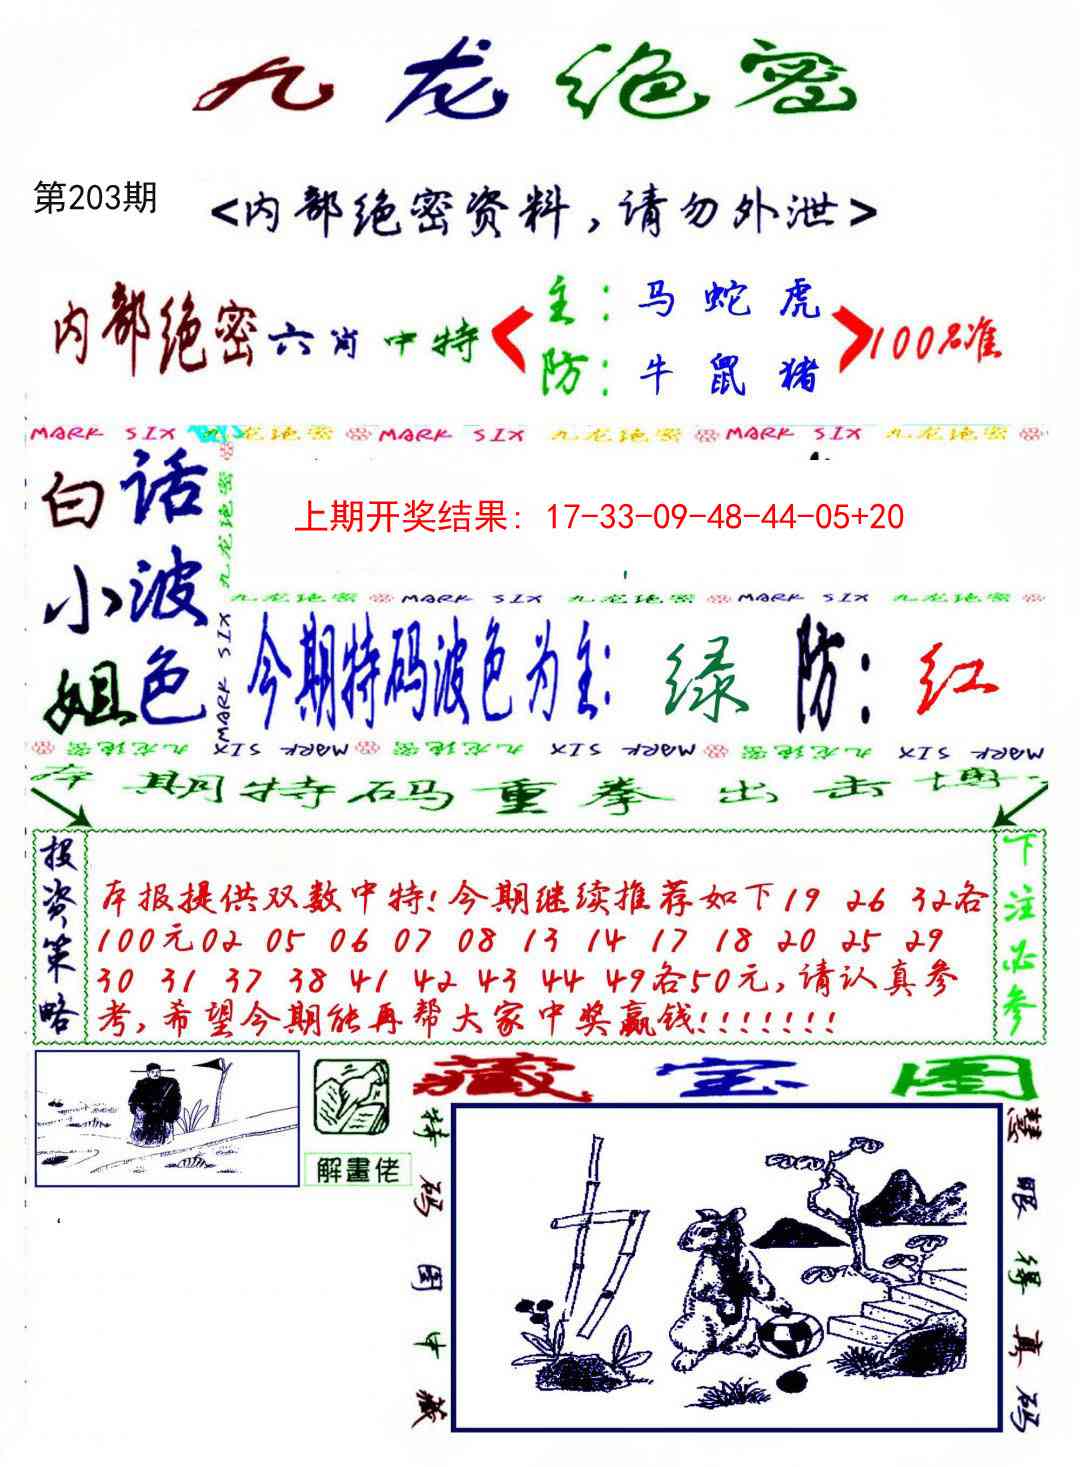 九龙绝密
第203期
<内部绝密资料，请勿外泄>
内部绝密六肖中特
主：马蛇虎
防：牛鼠猪
100%准
MARK SIX 九龙绝密 MARK SIX 九龙绝密 MARK SIX 九龙绝密
白小姐
话波色
九龙绝密
MARK SIX
上期开奖结果：17-33-09-48-44-05+20
九龙绝密 MARK SIX 九龙绝密 MARK SIX 九龙绝密
今期特码波色为主：绿 防：红
九龙绝密 MARK SIX 九龙绝密 MARK SIX 九龙绝密 MARK SIX
本期特码重拳出击博
投资策略
本报提供双数中特！今期继续推荐如下19 26 32各
100元02 05 06 07 08 13 14 17 18 20 25 29
30 31 37 38 41 42 43 44 49各50元，请认真参
考，希望今期能再帮大家中奖赢钱！！！！！！！
下注必参
解畫佬
藏宝图
特码图中藏
慧眼得真码